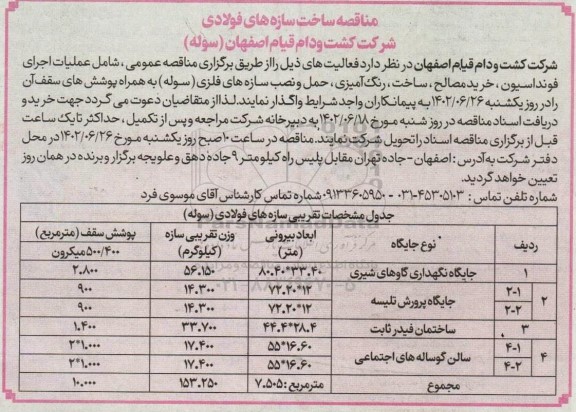 مناقصه ساخت سازه های فولادی
شرکت کشت ودام قیام اصفهان (سوله)
شرکت کشت ودام قیام اصفهان در نظر دارد فعالیت های ذیل را از طریق برگزاری مناقصه عمومی ، شامل عملیات اجرای
فونداسیون ، خرید مصالح ، ساخت ، رنگ آمیزی ، حمل و نصب سازه های فلزی (سوله) به همراه پوشش های سقف آن
را در روز یکشنبه ۱۴۰۲/۰۶/۲۶ به پیمانکاران واجد شرایط واگذار نمایند. لذا از متقاضیان دعوت می گردد جهت خرید و
دریافت اسناد مناقصه در روز شنبه مورخ ۱۴۰۲/۰۶/۱۸ به دبیرخانه شرکت مراجعه و پس از تکمیل ، حداکثر تا یک ساعت
قبل از برگزاری مناقصه اسناد را تحویل شرکت نمایند. مناقصه در ساعت ۱۰ صبح روز یکشنبه مورخ ۱۴۰۲/۰۶/۲۶ در محل
دفتر شرکت به آدرس : اصفهان - جاده تهران مقابل پلیس راه کیلومتر ۹ جاده دهق و علویجه برگزار و برنده در همان روز
تعیین خواهد گردید.
شماره تلفن تماس : ۴۵۳۰۵۱۰۳-۰۳۱ - ۰۹۱۳۳۶۰۵۹۵۰ شماره تماس کارشناس آقای موسوی فرد
جدول مشخصات تقریبی سازه های فولادی (سوله)
ردیف نوع جایگاه ابعاد بیرونی (متر) وزن تقریبی سازه (کیلوگرم) پوشش سقف (مترمربع) ۵۰۰/۴۰۰ میکرون
۱ جایگاه نگهداری گاوهای شیری ۳۳.۴۰*۸۰.۴۰ ۵۶.۱۵۰ ۲.۸۰۰
۲ ۲-۱ جایگاه پرورش تلیسه ۱۲*۷۲.۲۰ ۱۴.۳۰۰ ۹۰۰
۲-۲ ۱۲*۷۲.۲۰ ۱۴.۳۰۰ ۹۰۰
۳ ساختمان فیدر ثابت ۲۸.۴*۴۴.۴ ۳۳.۷۰۰ ۱.۴۰۰
۴ ۴-۱ سالن گوساله های اجتماعی ۱۶.۶۰*۵۵ ۱۷.۴۰۰ ۱.۰۰۰*۲
۴-۲ ۱۶.۶۰*۵۵ ۱۷.۴۰۰ ۱.۰۰۰*۲
مجموع مترمربع: ۷.۵۰۵ ۱۵۳.۲۵۰ ۱۰.۰۰۰